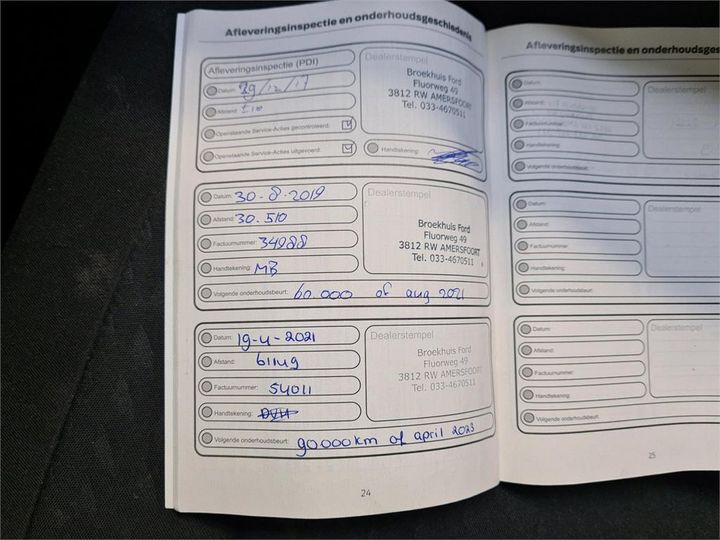 Afleveringsinspectie en onderhoudsgeschiedenis
Afleveringsinspectie (PDI)
Datum: 29/12/17
Afstand:
Openstaande Service-Acties gecontroleerd:
Openstaande Service-Acties uitgevoerd:
Dealerstempel
Broekhuis Ford
Fluorweg 49
3812 RW AMERSFOORT
Tel. 033-4670511
Handtekening:
Datum: 30-8-2019
Afstand: 30.510
Factuurnummer: 34988
Handtekening: MB
Dealerstempel
Broekhuis Ford
Fluorweg 49
3812 RW AMERSFOORT
Tel. 033-4670511
Volgende onderhoudsbeurt: 60.000 of aug 2021
Datum: 19-4-2021
Afstand: 61149
Factuurnummer: 54011
Handtekening:
Dealerstempel
Broekhuis Ford
Fluorweg 49
3812 RW AMERSFOORT
Tel. 033-4670511
Volgende onderhoudsbeurt: 90000km of april 2023
24
Afleveringsinspectie en onderhoudsges
Datum:
Afstand:
Factuurnummer:
Handtekening:
Volgende onderhoudsbeurt:
Dealerstempel
Datum:
Afstand:
Factuurnummer:
Handtekening:
Volgende onderhoudsbeurt:
Dealerstempel
Datum:
Afstand:
Factuurnummer:
Handtekening:
Volgende onderhoudsbeurt:
Dealerstempel
25